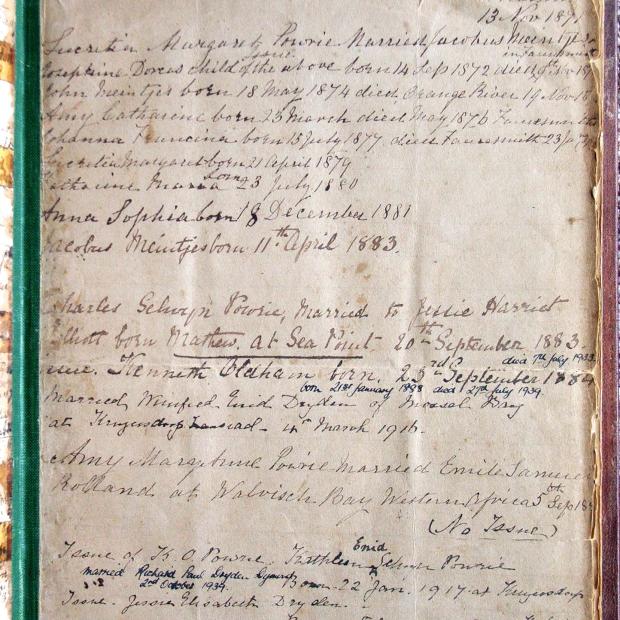 13 Nov 1871
Lucretia Margaret Powrie Married Jacobus Meintjes
issue in Fauresmith
Josephine Dorcas child of the above born 14 Sep 1872 died 9th Nov 18
John Meintjes born 18 May 1874 died Orange River 19 Nov 18
Amy Catharene born 23 March died May 1876 Fauresmith
Johanna Francina born 15 July 1877 died Fauresmith 23
Lucretia Margaret born 21 April 1879
Catharine Maria born 23 July 1880
Anna Sophia born 18 December 1881
Jacobus Meintjes born 11th April 1883.
Charles Selwyn Powrie, Married to Jessie Harriet
Elliott born Mathew, at Sea Point 20th September 1883.
died 7th July 1933.
issue. Kenneth Oldham born, 23rd September 1884
born 21st January 1898 died 27th July 1934.
Married Winifred Enid Dryden of Mossel Bay
at Krugersdorp Transvaal - March 1916.
Amy Marg Powrie married Emile Samuel
Rolland at Walvisch Bay Western Africa 5th Sep 18
(No Issue)
Issue of K. O Powrie. Kathleen Enid Selwyn Powrie
married Richard Paul Dryden Dymond
2nd October 1934. Born 22 Jan. 1917 at Krugersdorp
Issue. Jessie Elisabeth Dryden.